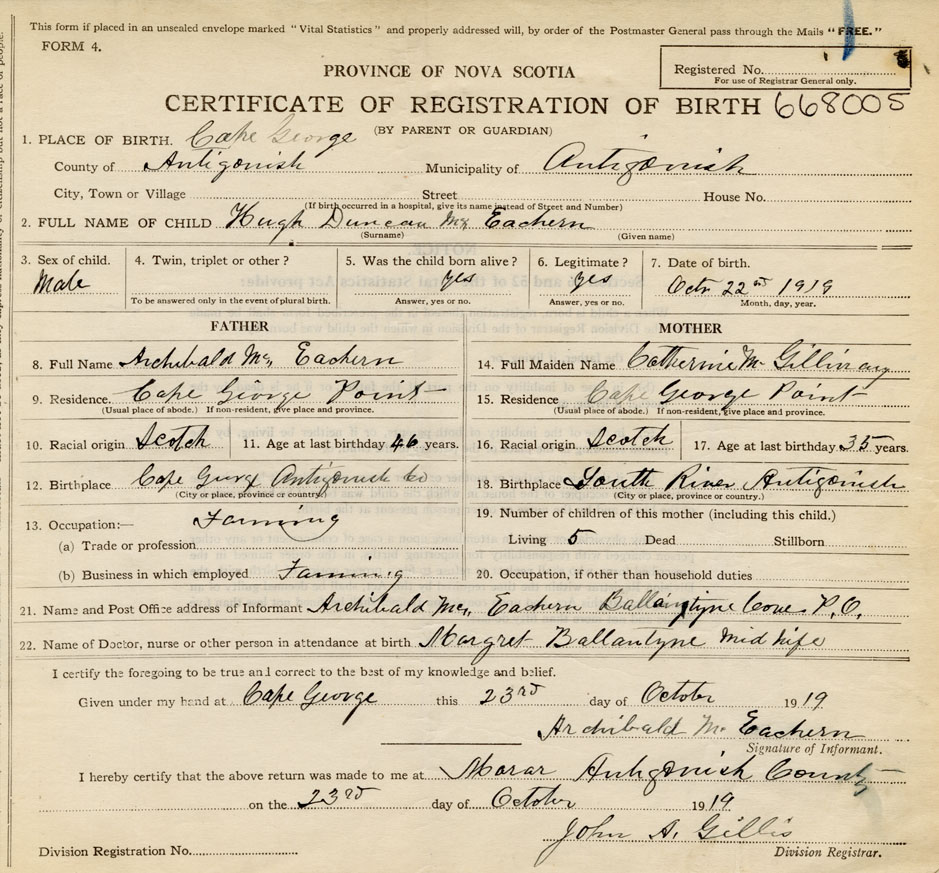 This form if placed in an unsealed envelope marked "Vital Statistics" and properly addressed will, by order of the Postmaster General pass through the Mails "FREE."
FORM 4.
Registered No.
For use of Registrar General only.
PROVINCE OF NOVA SCOTIA
CERTIFICATE OF REGISTRATION OF BIRTH 668005
(BY PARENT OR GUARDIAN)
1. PLACE OF BIRTH. Cape George
County of Antigonish Municipality of Antigonish
City, Town or Village Street House No.
(If birth occurred in a hospital, give its name instead of Street and Number)
2. FULL NAME OF CHILD Hugh Duncan Mc Eachern
(Surname) (Given name)
3. Sex of child. 4. Twin, triplet or other? 5. Was the child born alive? 6. Legitimate? 7. Date of birth.
Male yes yes Octr 22nd 1919
To be answered only in the event of plural birth. Answer, yes or no. Answer, yes or no. Month, day, year.
FATHER MOTHER
8. Full Name Archibald Mc Eachern 14. Full Maiden Name Catherine Mc Gillivray
9. Residence. Cape George Point 15. Residence Cape George Point
(Usual place of abode.) If non-resident, give place and province. (Usual place of abode.) If non-resident, give place and province.
10. Racial origin Scotch 11. Age at last birthday 46 years. 16. Racial origin Scotch 17. Age at last birthday 35 years.
12. Birthplace Cape George Antigonish Co 18. Birthplace South River Antigonish
(City or place, province or country.) (City or place, province or country.)
13. Occupation:— Farming 19. Number of children of this mother (including this child.)
(a) Trade or profession Living 5 Dead Stillborn
(b) Business in which employed Farming 20. Occupation, if other than household duties
21. Name and Post Office address of Informant Archibald Mc Eachern Ballantyne Cove P.O.
22. Name of Doctor, nurse or other person in attendance at birth Margret Ballantyne Midwife
I certify the foregoing to be true and correct to the best of my knowledge and belief.
Given under my hand at Cape George this 23rd day of October 1919
Archibald Mc Eachern
Signature of Informant.
I hereby certify that the above return was made to me at Morar Antigonish County
on the 23rd day of October 1919
John A. Gillis
Division Registration No. Division Registrar.